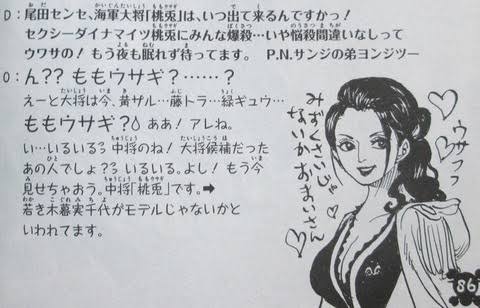 D：尾田センセ、海軍大将「桃兎」は、いつ出て来るんですかっ！
セクシーダイナマイツ桃兎にみんな爆殺…いや悩殺間違いなしって
ウワサの！もう夜も眠れず待ってます。 P.N.サンジの弟ヨンジツー
O：ん？？ ももウサギ？……？
えーと大将は今、黄ザル…藤トラ…緑ギュウ…
ももウサギ？ああ！アレね。
い…いるいる 中将のね！大将候補だった
あの人でしょ？いるいる。よし！もう今
見せちゃおう。中将「桃兎」です。➡
若き木暮実千代がモデルじゃないかと
いわれてます。
みずくさいじゃ
ないか おまいさん
ウサフフ
86